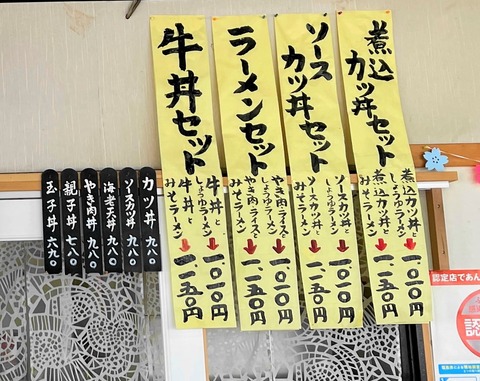 煮込カツ丼セット
煮込カツ丼と
しょうゆラーメン
一〇一〇円
煮込カツ丼と
みそラーメン
一一五〇円
ソースカツ丼セット
ソースカツ丼と
しょうゆラーメン
一〇一〇円
ソースカツ丼と
みそラーメン
一一五〇円
ラーメンセット
やき肉ライスと
しょうゆラーメン
一〇一〇円
やき肉ライスと
みそラーメン
一一五〇円
牛丼セット
牛丼と
しょうゆラーメン
一〇一〇円
牛丼と
みそラーメン
一一五〇円
カツ丼 九八〇
ソースカツ丼 九八〇
海老天丼 九八〇
やき肉丼 九八〇
親子丼 七八〇
玉子丼 六九〇
認定店であん
認